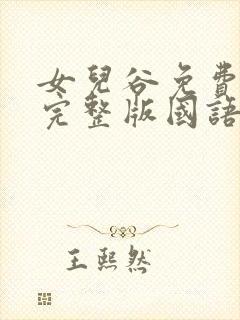 女兒谷免費
完整版國語
王熙然